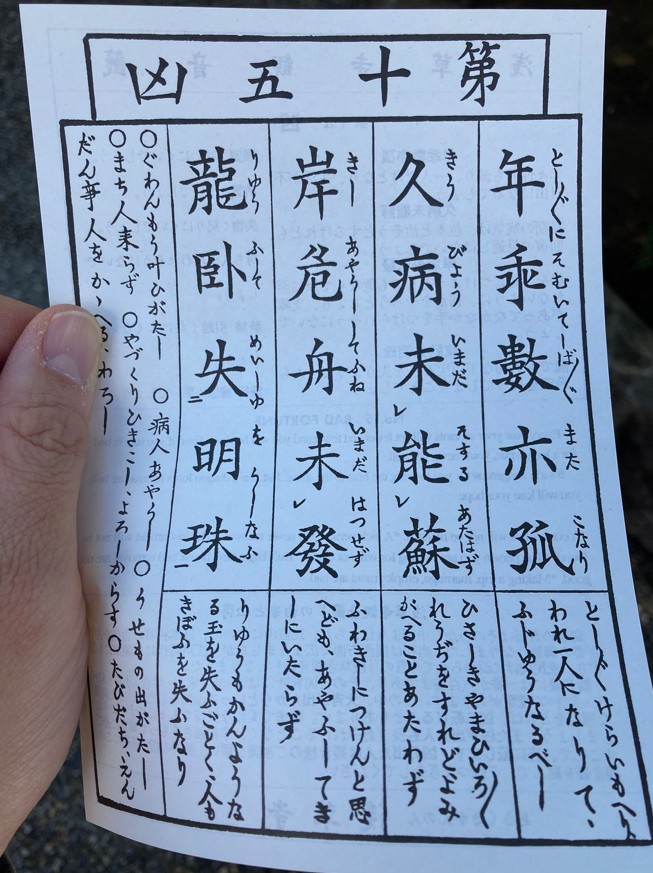 第十五凶
年乖數亦孤
としどしにそむいてしば〳〵 また こなり
とし〴〵けらいもへり、
われ一人になりて、
ふじゆうなるべし
久病未レ能レ蘇
きうびよう いまだ そする あたはず
ひさしきやまひいろ〳〵
れうぢをすれどよみ
がへることあたわず
岸危舟未レ發
きし あやうしてふね いまだ はつせず
ふねきしにつけんと思
へども、あやふしてき
しにいたらず
龍卧失二明珠一
りゆう ふして めいしゆ を うしなふ
りゆうもかんような
る玉を失ふごとく、人も
きぼふを失ふなり
○ぐわんもう叶ひがたし ○病人あやうし ○うせもの出がたし
○まち人来らず ○やづくりひきこし、よろしからす○たびだち、えん
だん等人をかゝへる、わろし